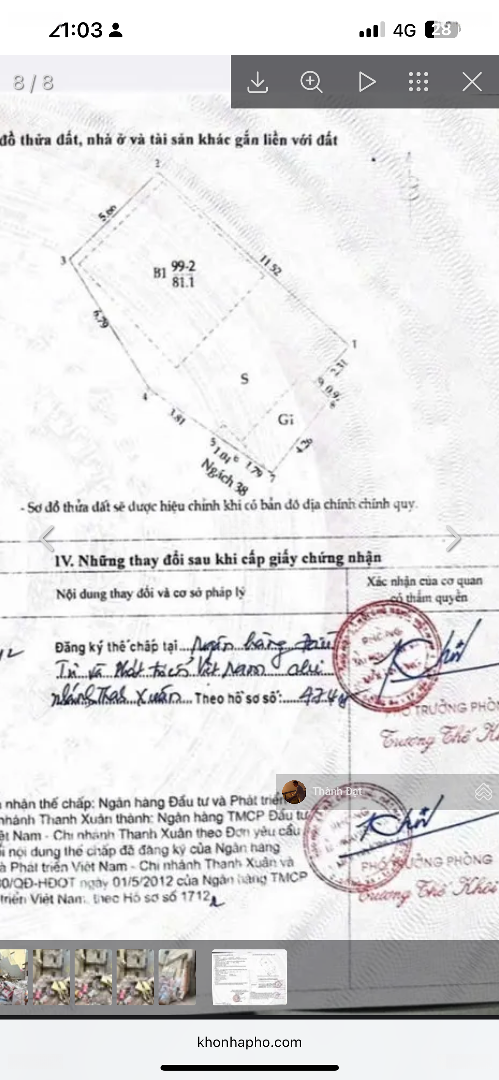 1:03
4G 28
8 / 8
đồ thửa đất, nhà ở và tài sản khác gắn liền với đất
2
5.00
3
B1 99-2
81.1
11.52
6.79
1
2.31
S
4
0.92
8
3.81
Gi
4.26
5
1.04
6
1.79
7
Ngách 38
- Sơ đồ thửa đất sẽ được hiệu chỉnh khi có bản đồ địa chính chính quy.
IV. Những thay đổi sau khi cấp giấy chứng nhận
Nội dung thay đổi và cơ sở pháp lý
Xác nhận của cơ quan
có thẩm quyền
Đăng ký thế chấp tại Ngân hàng Đầu
Tư và Phát triển Việt Nam chi
nhánh Thanh Xuân Theo hồ sơ số:
PHÓ TRƯỞNG PHÒN
Trương Thế Kh
Thành Đạt
nhận thế chấp: Ngân hàng Đầu tư và Phát triển
nhánh Thanh Xuân thành: Ngân hàng TMCP Đầu tư
ệt Nam - Chi nhánh Thanh Xuân theo Đơn yêu cầu
i nội dung thế chấp đã đăng ký của Ngân hàng
à Phát triển Việt Nam - Chi nhánh Thanh Xuân và
0/QĐ-HĐQT ngày 01/5/2012 của Ngân hàng TMCP
triển Việt Nam, theo Hồ sơ số 1712
PHÓ TRƯỞNG PHÒNG
Trương Thế Khôi
khonhapho.com